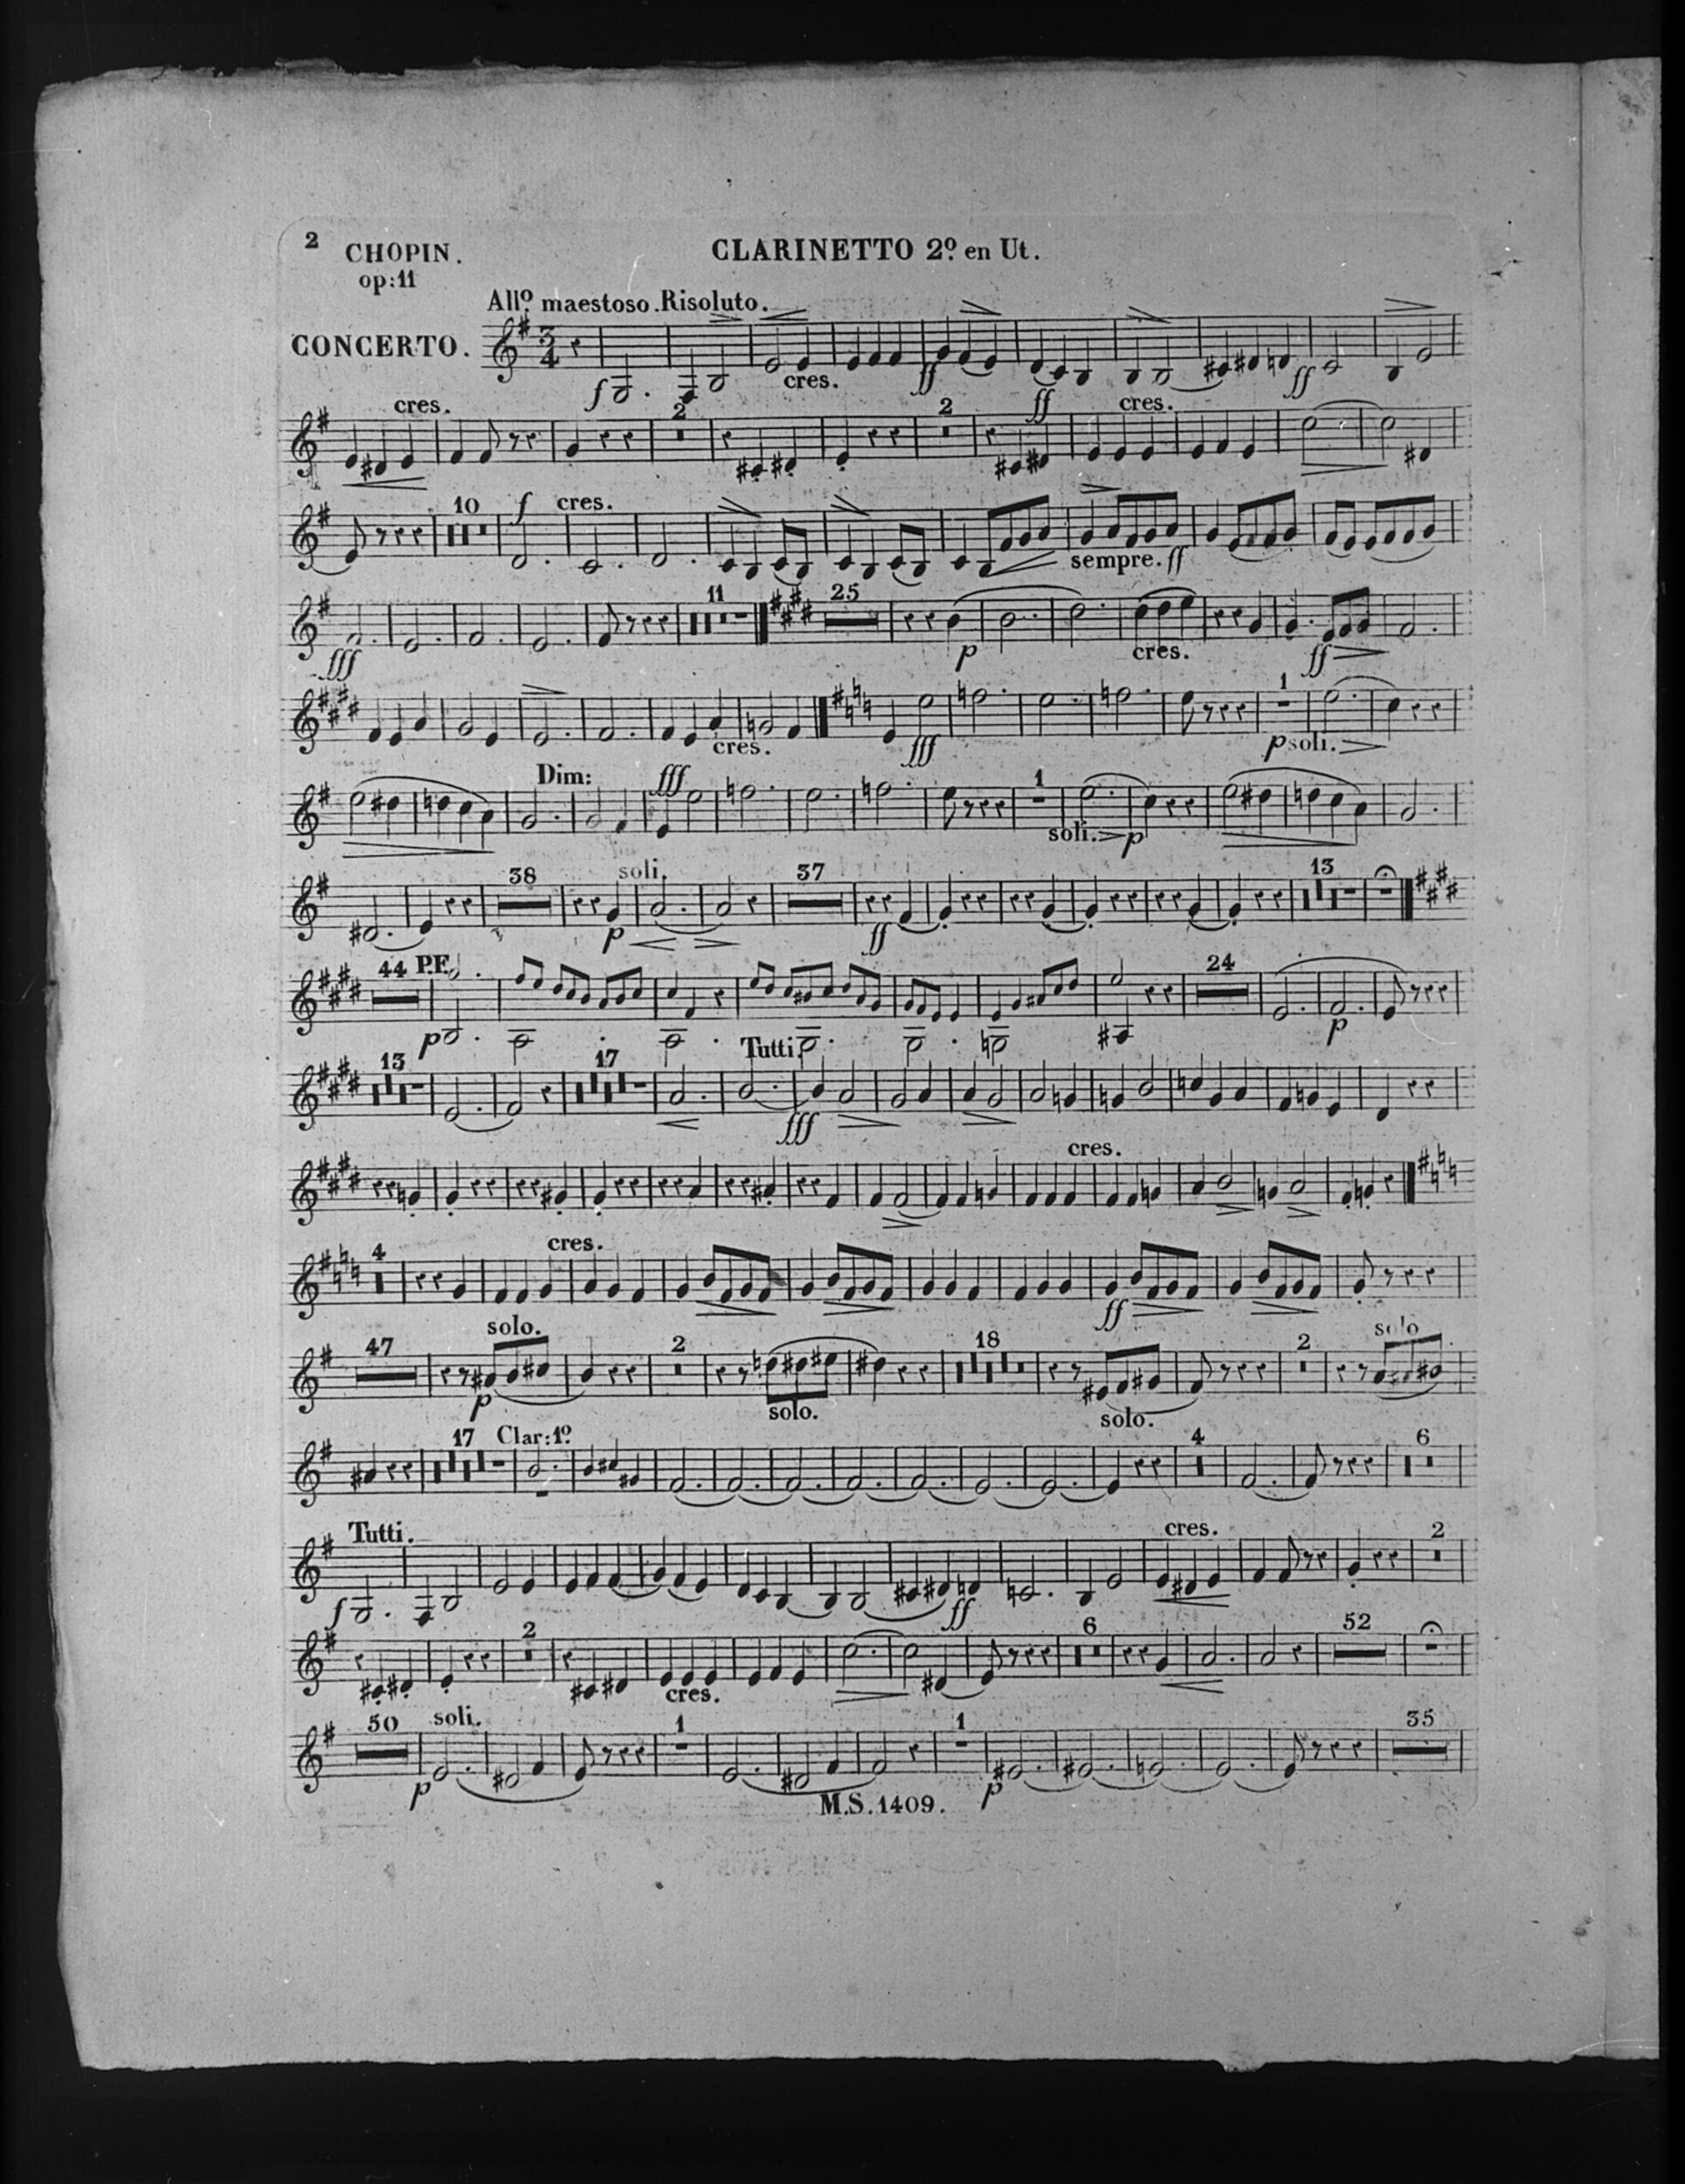 2 CHOPIN. CLARINETTO 2º en Ut.
op:11
Allº maestoso. Risoluto.
CONCERTO. 3/4
f cres. ff ff
cres. 2 2 ff cres.
10 f cres. sempre. ff
fff 11 25 p cres. ff
cres. fff 1 p soli.
Dim: fff 1 soli. p
38 soli. p 37 ff 13
44 P.F. p 24 p
13 17 Tutti. fff
cres.
4 cres. ff
47 solo. p 2 solo. 18 solo. 2 solo
17 Clar: 1º 4 6
Tutti. f ff cres. 2
2 cres. 6 52
50 soli. p 1 1 p 35
M.S. 1409.